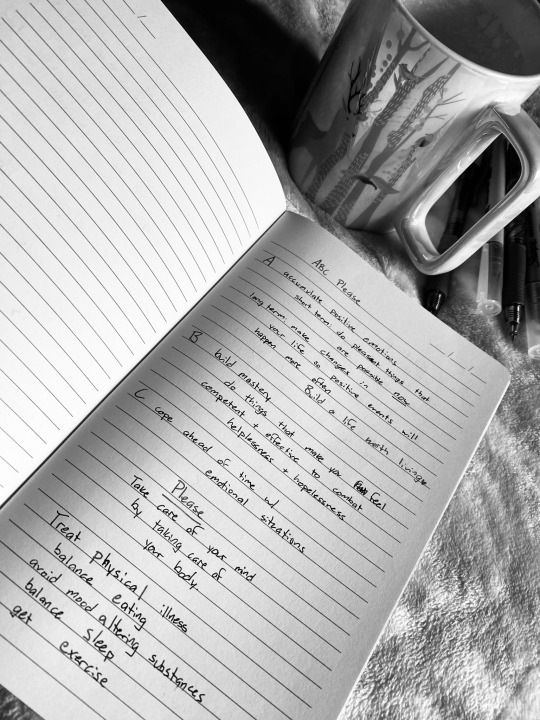 ABC Please
A accumulate positive emotions
short term: do pleasant things that
are possible now
long term: make changes in
your life so positive events will
happen more often. Build a life worth living.
B build mastery
do things that make you feel
competent + effective to combat
helplessness + hopelessness
C cope ahead of time w/
emotional situations
Please
Take care of your mind
by taking care of
your body.
Treat physical illness
balance eating
avoid mood altering substances
balance sleep
get exercise